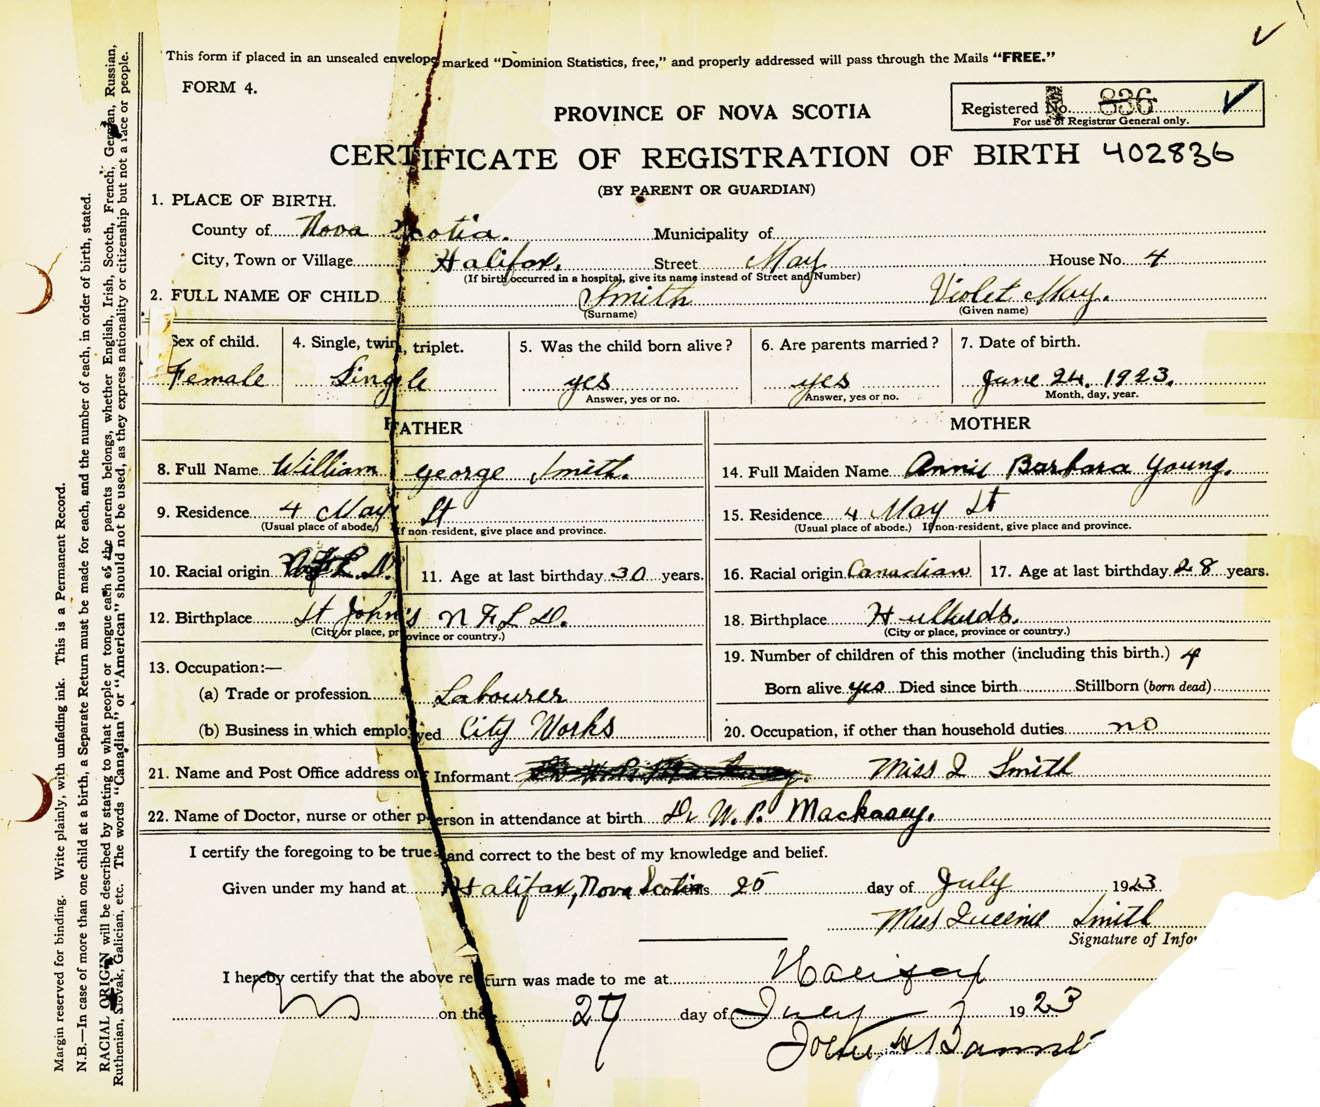 This form if placed in an unsealed envelope marked "Dominion Statistics, free," and properly addressed will pass through the Mails "FREE."
FORM 4.
PROVINCE OF NOVA SCOTIA
Registered No. 836
For use of Registrar General only.
CERTIFICATE OF REGISTRATION OF BIRTH 402836
(BY PARENT OR GUARDIAN)
1. PLACE OF BIRTH.
County of Nova Scotia. Municipality of
City, Town or Village Halifax. Street May House No. 4
(If birth occurred in a hospital, give its name instead of Street and Number)
2. FULL NAME OF CHILD Smith Violet May.
(Surname) (Given name)
Sex of child. 4. Single, twin, triplet. 5. Was the child born alive? 6. Are parents married? 7. Date of birth.
Female Single yes yes June 24, 1923.
Answer, yes or no. Answer, yes or no. Month, day, year.
FATHER MOTHER
8. Full Name William George Smith. 14. Full Maiden Name Annie Barbara Young.
9. Residence 4 May St 15. Residence 4 May St
(Usual place of abode.) If non-resident, give place and province. (Usual place of abode.) If non-resident, give place and province.
10. Racial origin 11. Age at last birthday 30 years. 16. Racial origin Canadian 17. Age at last birthday 28 years.
12. Birthplace St John's NFLD. 18. Birthplace
(City or place, province or country.) (City or place, province or country.)
13. Occupation:— 19. Number of children of this mother (including this birth.) 4
(a) Trade or profession Labourer Born alive yes Died since birth Stillborn (born dead)
(b) Business in which employed City Works 20. Occupation, if other than household duties no
21. Name and Post Office address of Informant Miss I Smith
22. Name of Doctor, nurse or other person in attendance at birth Dr W. P. Mackasey.
I certify the foregoing to be true and correct to the best of my knowledge and belief.
Given under my hand at Halifax, Nova Scotia this 25 day of July 1923
Miss Smith
Signature of Infor
I hereby certify that the above return was made to me at Halifax
on the 27 day of July 1923
John H
Margin reserved for binding. Write plainly, with unfading ink. This is a Permanent Record.
N.B.—In case of more than one child at a birth, a Separate Return must be made for each, and the number of each, in order of birth, stated.
RACIAL ORIGIN will be described by stating to what people or tongue each of the parents belongs, whether English, Irish, Scotch, French, German, Russian,
Ruthenian, Slovak, Galician, etc. The words "Canadian" or "American" should not be used, as they express nationality or citizenship but not a race or people.